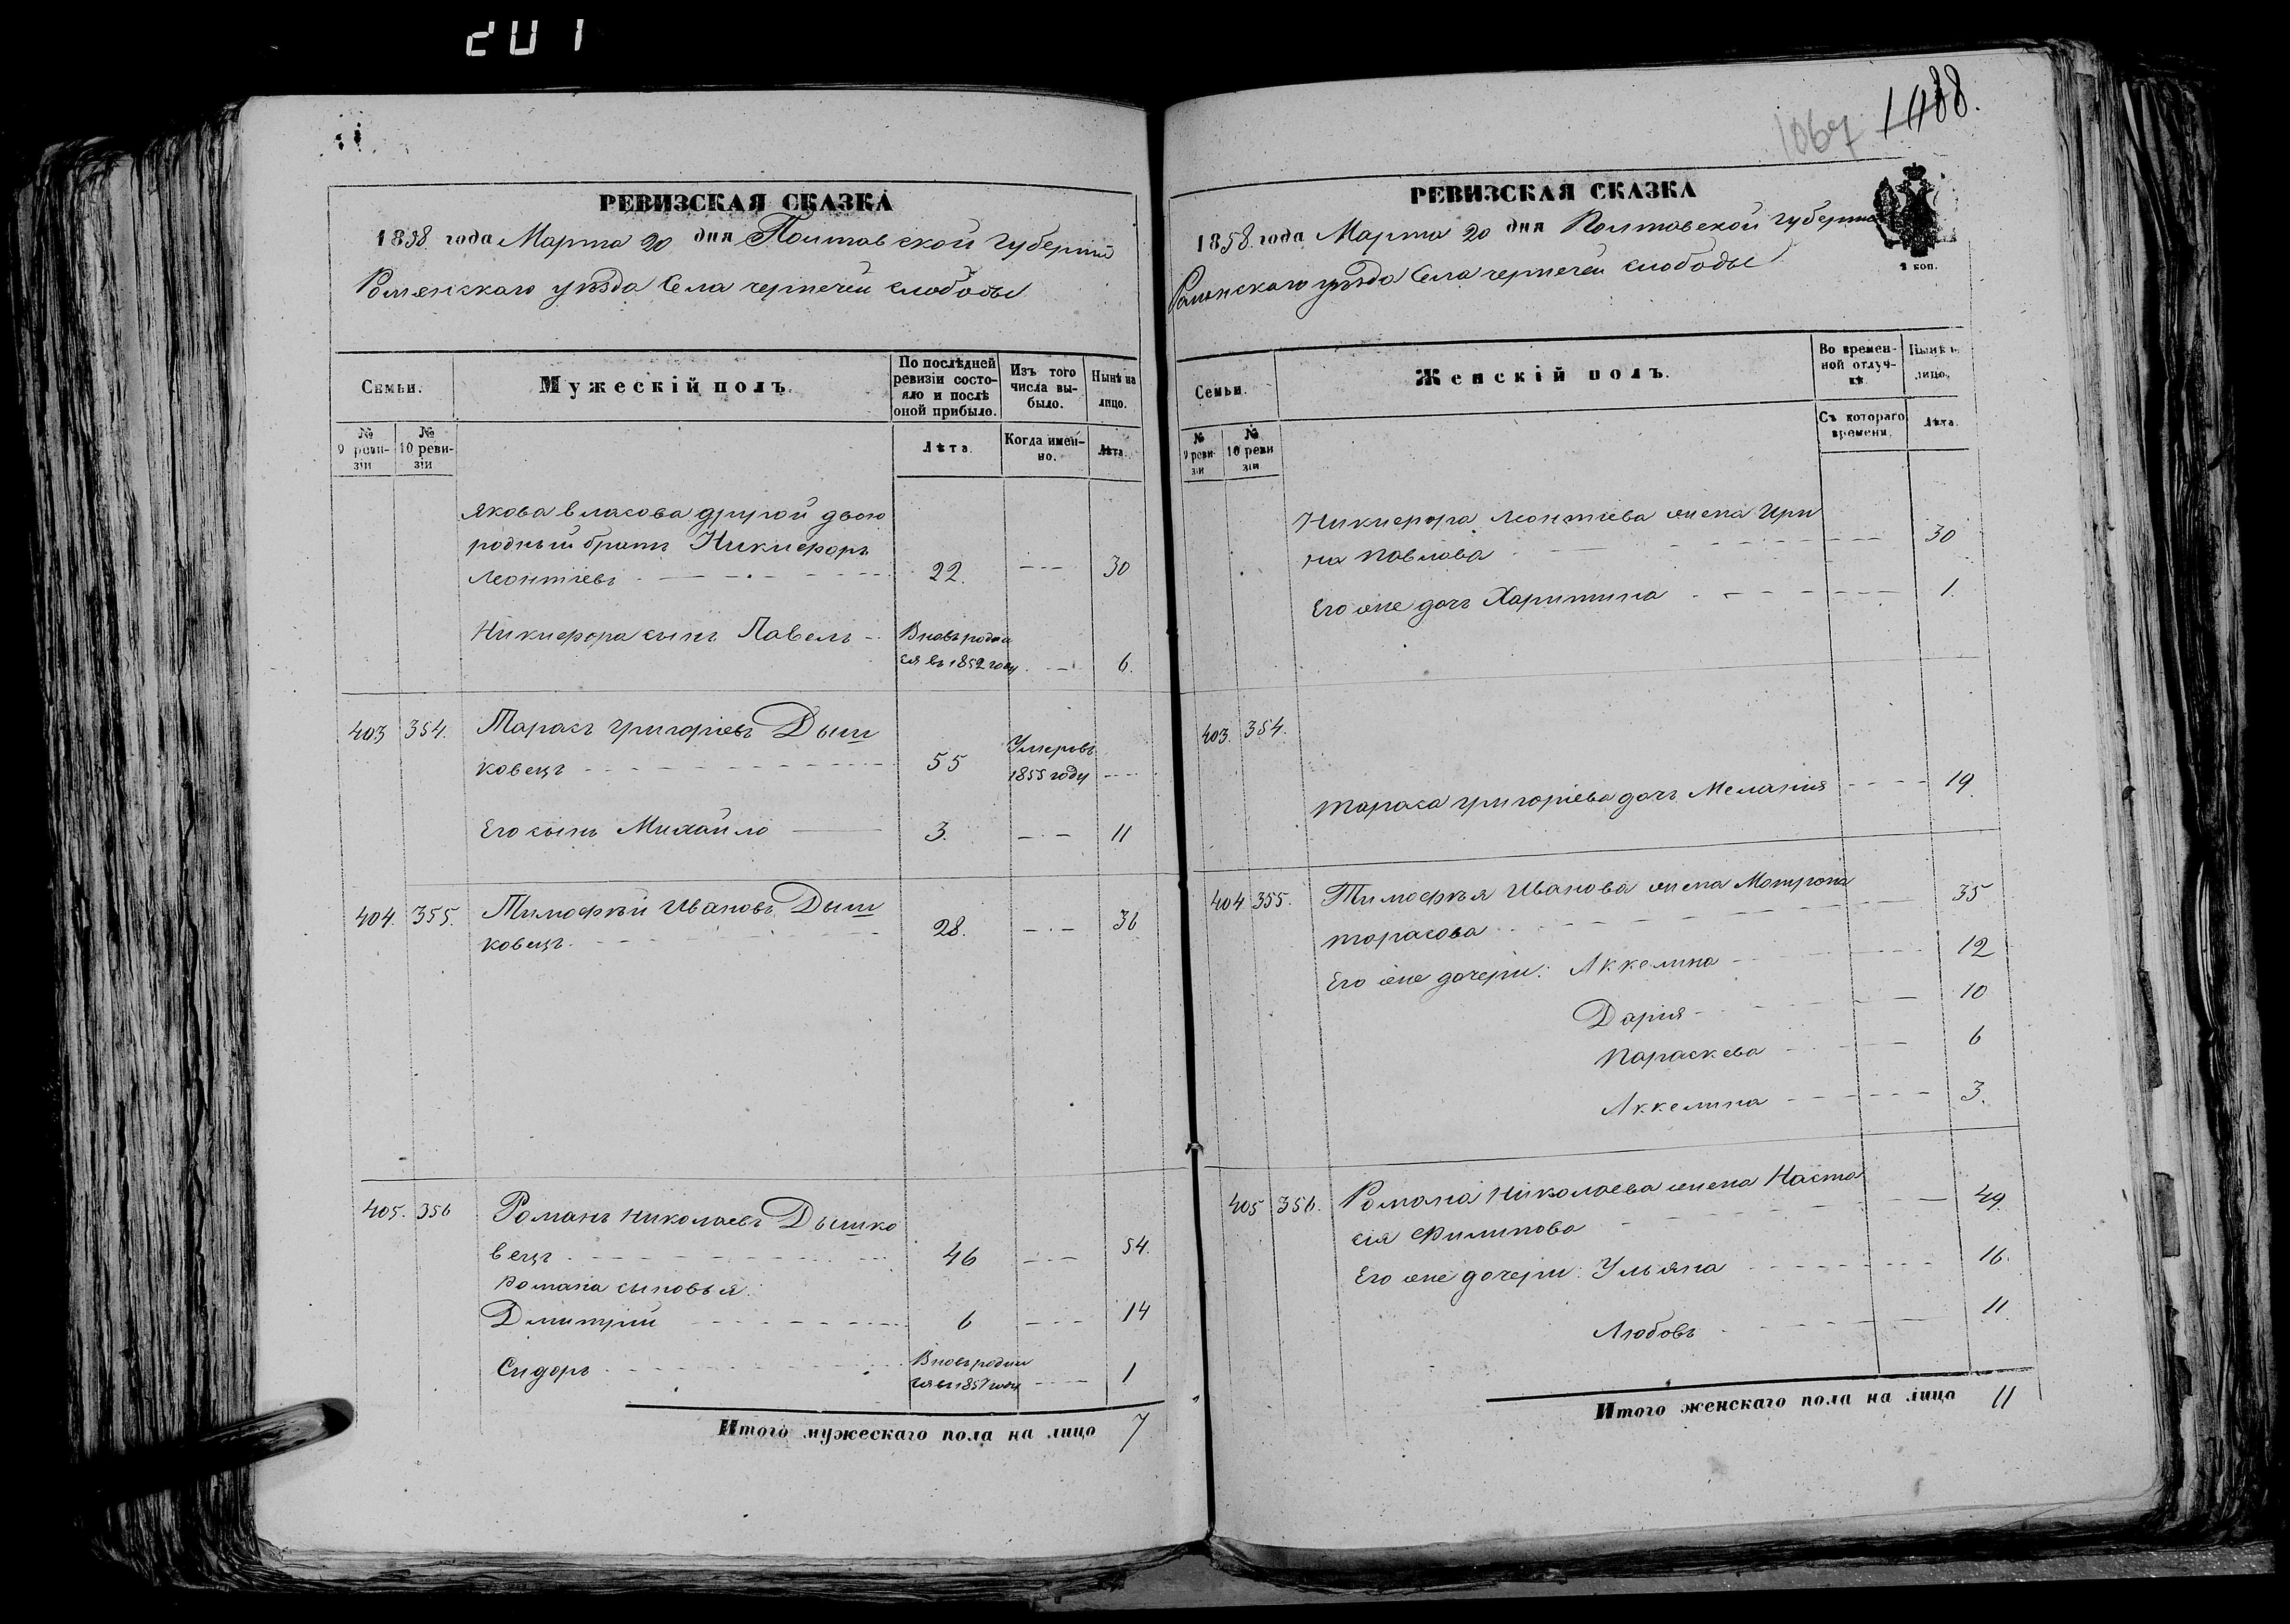 201
РЕВИЗСКАЯ СКАЗКА
1858 года Марта 20 дня Полтавской Губерніи
Роменскаго уѣзда Села чернечей слободы
Семьи.
Мужескій полъ.
По послѣдней ревизіи состояло и послѣ оной прибыло.
Изъ того числа выбыло.
Нынѣ на лицо.
№ 9 ревизіи
№ 10 ревизіи
Лѣта.
Когда именно.
Лѣта.
Якова власова другой двою
родный братъ Никифоръ
Леонтіевъ 22. 30
Никифора сынъ Павелъ Вновь родил
ся въ 1852 году 6.
403 354. Тарасъ григоріевъ Дыш
ковецъ 55 Умеръ въ
1855 году
Его сынъ Михайло 3. 11
404. 355. Тимофѣй Ивановъ Дыш
ковецъ 28. 36
405. 356 Романъ Николаевъ Дышко
вецъ 46 54.
Романа сыновья:
Дмитрий 6 14
Сидоръ Вновь родил
ся въ 1857 году 1
Итого мужескаго пола на лицо 7
1067 1488.
РЕВИЗСКАЯ СКАЗКА
1858. года Марта 20 дня Полтавской губерніи
Роменскаго уѣзда Села чернечей слободы
коп.
Семьи.
Женскій полъ.
Во временной отлучкѣ.
Нынѣ на лицо.
№ 9 ревизіи
№ 10 ревизіи
Съ котораго времени.
Лѣта.
Никифора Леонтіева жена Ири
на Павлова 30
Его же дочь Харитина 1.
403. 354.
Тараса григоріева дочь Меланія 19
404 355. Тимофѣя Иванова жена Мотрона
тарасова 35
Его же дочери: Аккелина 12
Дарія 10
Параскева 6
Аккелина 3.
405 356. Романа Николаева жена Наста
сія Филипова 49
Его же дочери: Ульяна 16.
Любовь 11.
Итого женскаго пола на лицо 11